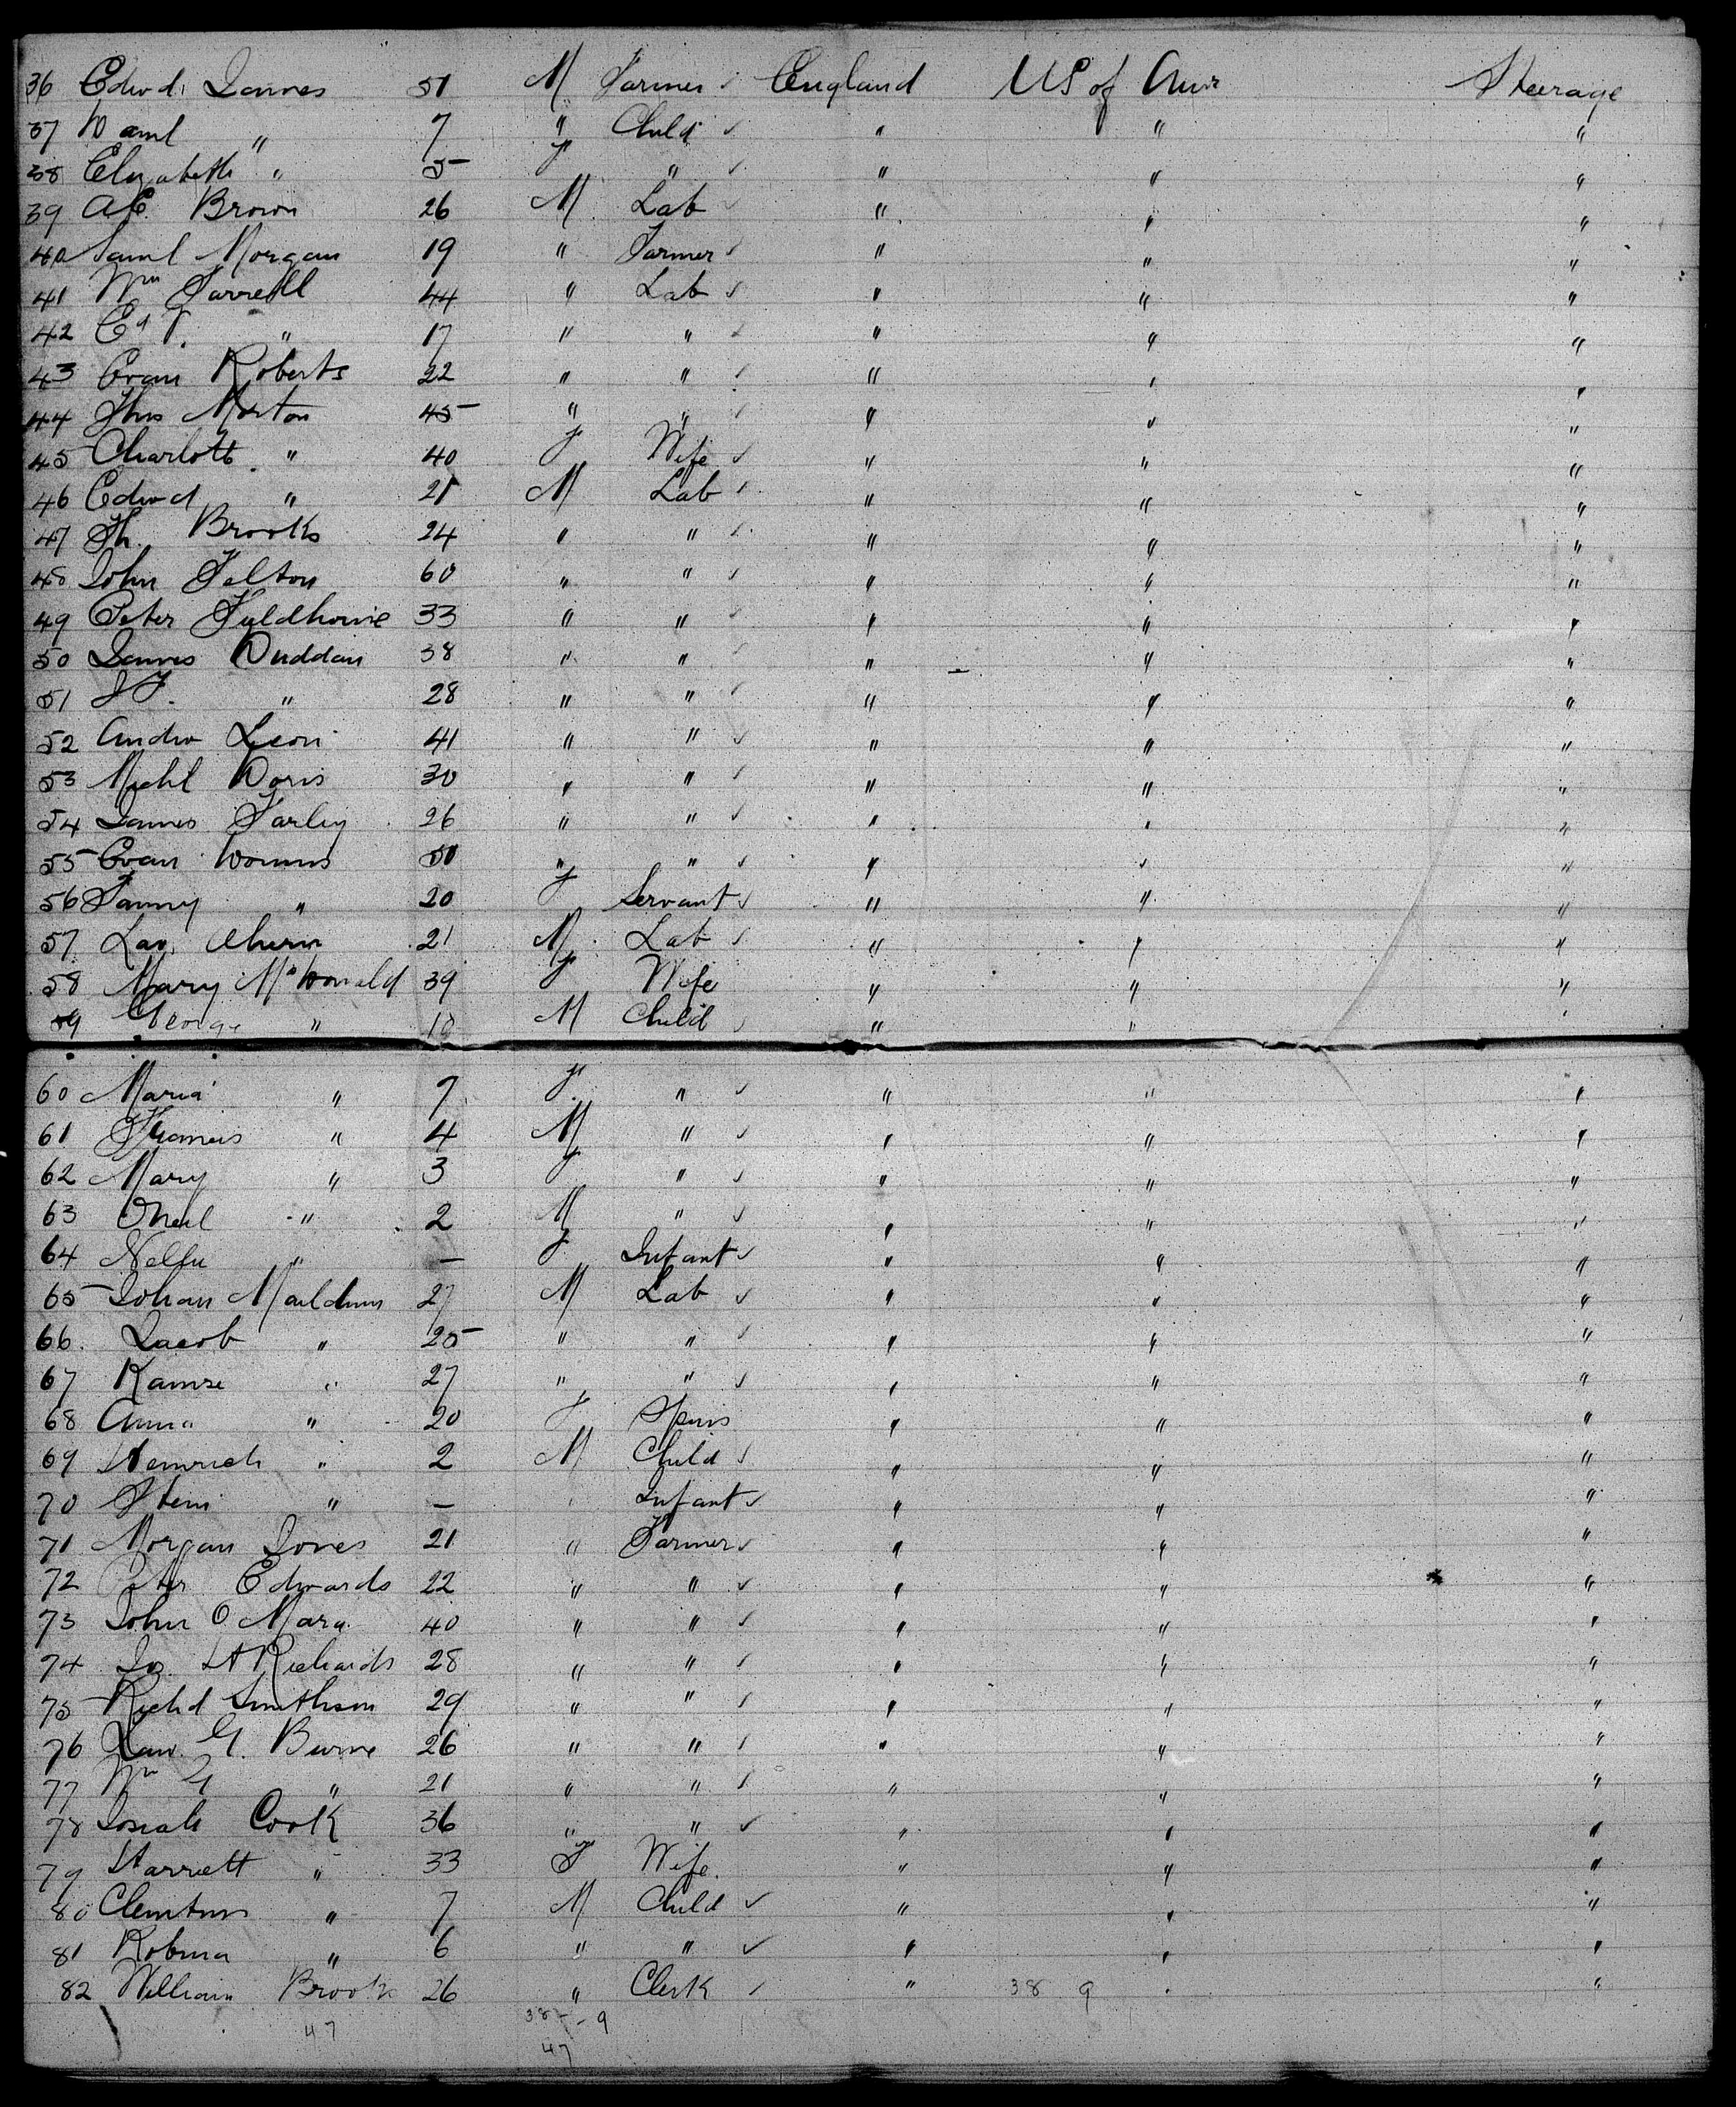 36 Edwd James 51 M Farmer ✓ England US of Amr Steerage
37 Danl " 7 " Child ✓ " " "
38 Elizabeth " 5 F " ✓ " " "
39 A E. Brown 26 M Lab ✓ " " "
40 Saml Morgan 19 " Farmer ✓ " " "
41 Wm Farrell 44 " Lab ✓ " " "
42 Ed T. " 17 " " ✓ " " "
43 Evan Roberts 22 " " ✓ " " "
44 Thos Morton 45 " " ✓ " " "
45 Charlott " 40 F Wife ✓ " " "
46 Edwd " 21 M Lab ✓ " " "
47 Th. Brooks 24 " " ✓ " " "
48 John Felton 60 " " ✓ " " "
49 Peter 33 " " ✓ " " "
50 James Duddan 38 " " ✓ " " "
51 J T. " 28 " " ✓ " " "
52 Andw Leon 41 " " ✓ " " "
53 Michl Doris 30 " " ✓ " " "
54 James Farley 26 " " ✓ " " "
55 Evan 50 " " ✓ " " "
56 Fanny " 20 F Servant ✓ " " "
57 Law. Ahern 21 M Lab ✓ " " "
58 Mary McDonald 39 F Wife " " "
59 George " 10 M Child ✓ " " "
60 Maria " 7 F " ✓ " " "
61 Francis " 4 M " ✓ " " "
62 Mary " 3 F " ✓ " " "
63 ONeil " 2 M " ✓ " " "
64 Nellie " — F Infant ✓ " " "
65 Johan 27 M Lab ✓ " " "
66. Jacob " 25 " " ✓ " " "
67 " 27 " " ✓ " " "
68 Anna " 20 F Spins " " "
69 Heinrich " 2 M Child ✓ " " "
70 " — " Infant ✓ " " "
71 Morgan Jones 21 " Farmer ✓ " " "
72 Peter Edwards 22 " " ✓ " " "
73 John O Mara 40 " " ✓ " " "
74 Jo. H Richards 28 " " ✓ " " "
75 Richd Smithson 29 " " ✓ " " "
76 Law. G. Burne 26 " " ✓ " " "
77 Wm G " 21 " " ✓ " " "
78 Josiah Cook 36 " " ✓ " " "
79 Harriett " 33 F Wife. " " "
80 " 7 M Child ✓ " " "
81 Robina " 6 " " ✓ " " "
82 William Brooks 26 " Clerk ✓ " 38 9 " "
47 38 - 9
47